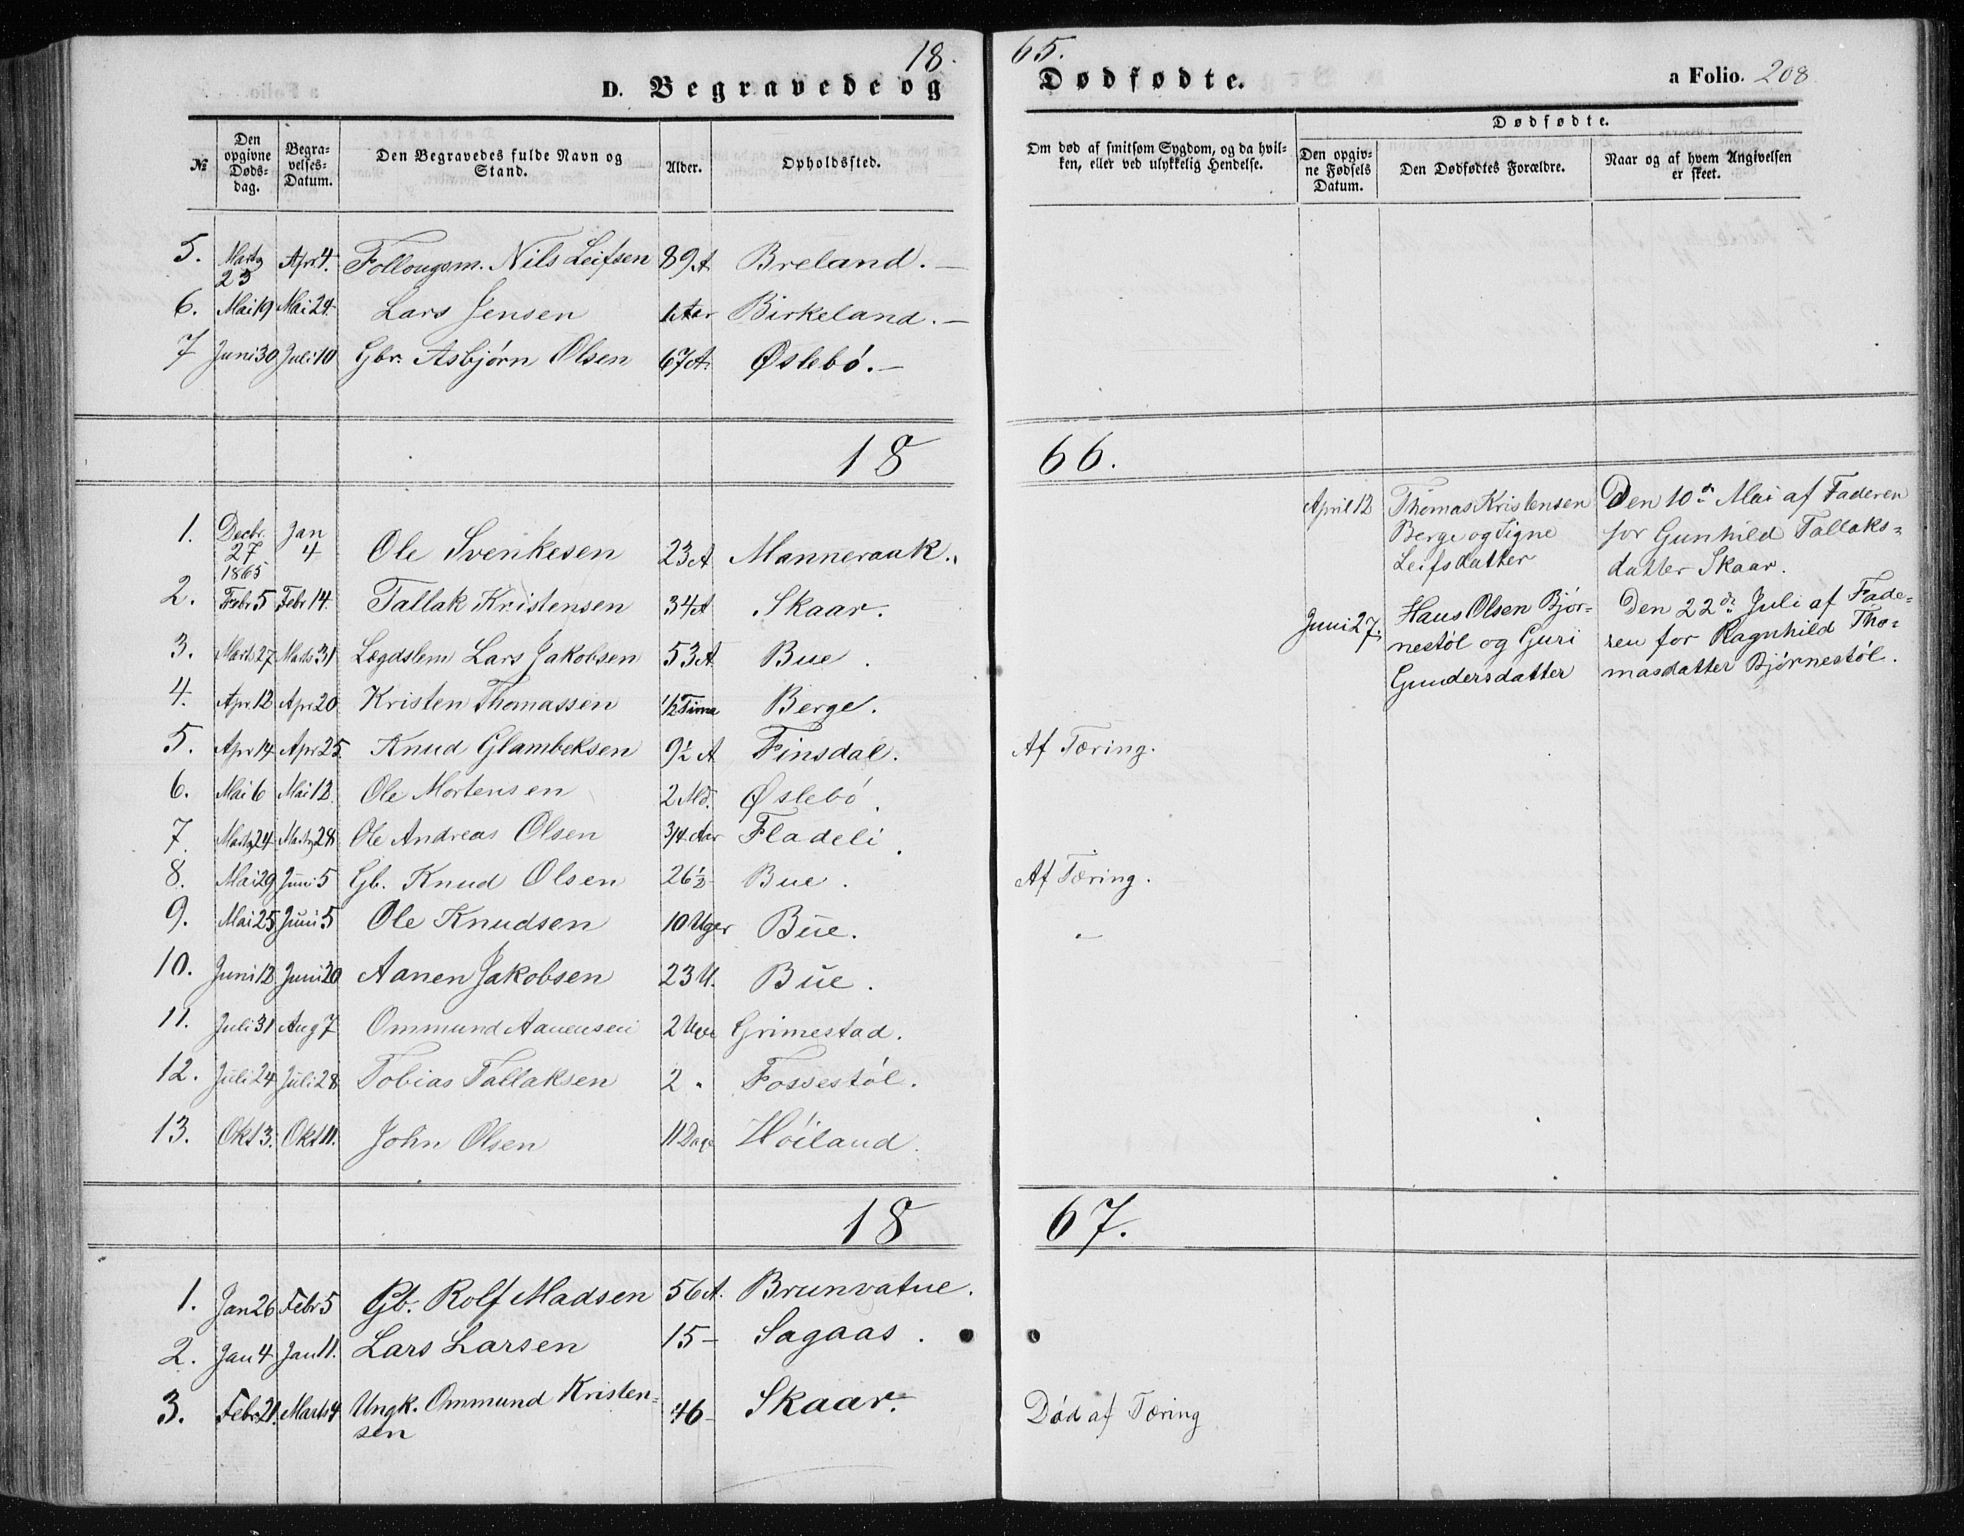 18. 65.
D. Begravede og Dødfødte. a Folio. 208
№
Den opgivne Døds-dag.
Begra-velses-Datum.
Den Begravedes fulde Navn og Stand.
Alder.
Opholdssted.
Om død af smitsom Sygdom, og da hvil-ken, eller ved ulykkelig Hendelse.
Dødfødte.
Den opgiv-ne Fødsels Datum.
Den Dødfødtes Forældre.
Naar og af hvem Angivelsen er skeet.
5. Marts 23 Apr 4. Follougsm. Nils Leifsen 89 A Breland. —
6. Mai 19 Mai 24 Lars Jensen 1 Aar Birkeland. —
7 Juni 30 Juli 10 Gbr. Asbjørn Olsen 67 A. Øslebö. —
18 66.
1. Decbr. 27 1865 Jan 4 Ole Svenkesen 23 A Manneraak.
2. Febr 5 Febr 14. Tallak Kristensen 34 A Skaar.
3. Marts 27 Marts 31 Lægdslem Lars Jakobsen 53 A Bue.
4. Apr. 12 Apr 20 Kristen Thomassen ½ Time Berge.
5. Apr 14 Apr 25. Knud Glambeksen 9½ A Finsdal. Af Tæring.
6. Mai 6 Mai 12 Ole Mortensen 2 Md. Øslebö.
7. Marts 24 Marts 28 Ole Andreas Olsen 3/4 Aar Fladeli.
8. Mai 29 Juni 5 Gb. Knud Olsen 26½ - Bue. Af Tæring.
9. Mai 25 Juni 5 Ole Knudsen 10 Uger Bue. —
10. Juni 12 Juni 20 Aanen Jakobsen 23 U. Bue.
11. Juli 31 Aug 7 Ommund Aanensen 2 Uge Grimestad.
12. Juli 24 Juli 28 Tobias Tallaksen 2 " Fossestøl.
13. Okt 3. Okt 11. John Olsen 11 Dage Höiland.
April 12 Thomas Kristensen Den 10de Mai af Faderen
Berge og Signe for Gunhild Tallaks=
Leifsdatter datter Skaar.
Juni 27. Hans Olsen Bjør- Den 22de Juli af Fade-
nestøl og Guri ren for Ragnhild Tho-
Gundersdatter masdatter Bjørnestøl.
18 67.
1. Jan 26 Febr 5 Gb. Rolf Madsen 56 A. Brunvatne.
2. Jan 4 Jan 11. Lars Larsen 15 — Sagaas.
3. Febr 21. Marts 4 Ungk. Ommund Kristen= 46 — Skaar. Død af Tæring
sen